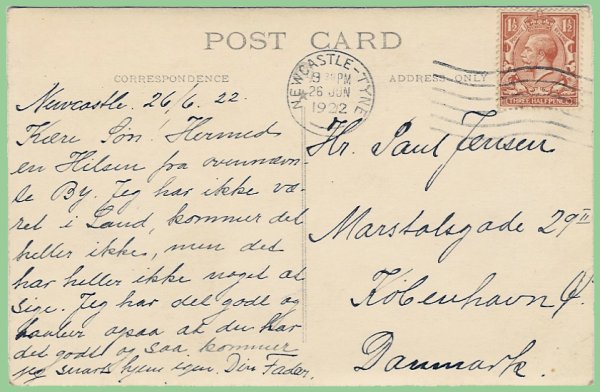 POST CARD
CORRESPONDENCE
ADDRESS ONLY
NEWCASTLE-TYNE
PM
26 JUN
1922
1½ 1½
THREE HALFPENCE
Newcastle. 26/6. 22.
Kære Søn! Hermed
en Hilsen fra ovennævn-
te By. Jeg har ikke væ-
ret i Land, kommer det
heller ikke, men det
har heller ikke noget at
sige. Jeg har det godt og
haaber ogsaa at du har
det godt og saa kommer
jeg snart hjem igen. Din Fader.
Hr. Paul Jensen
Marstalsgade 29 II
København Ø.
Danmark.